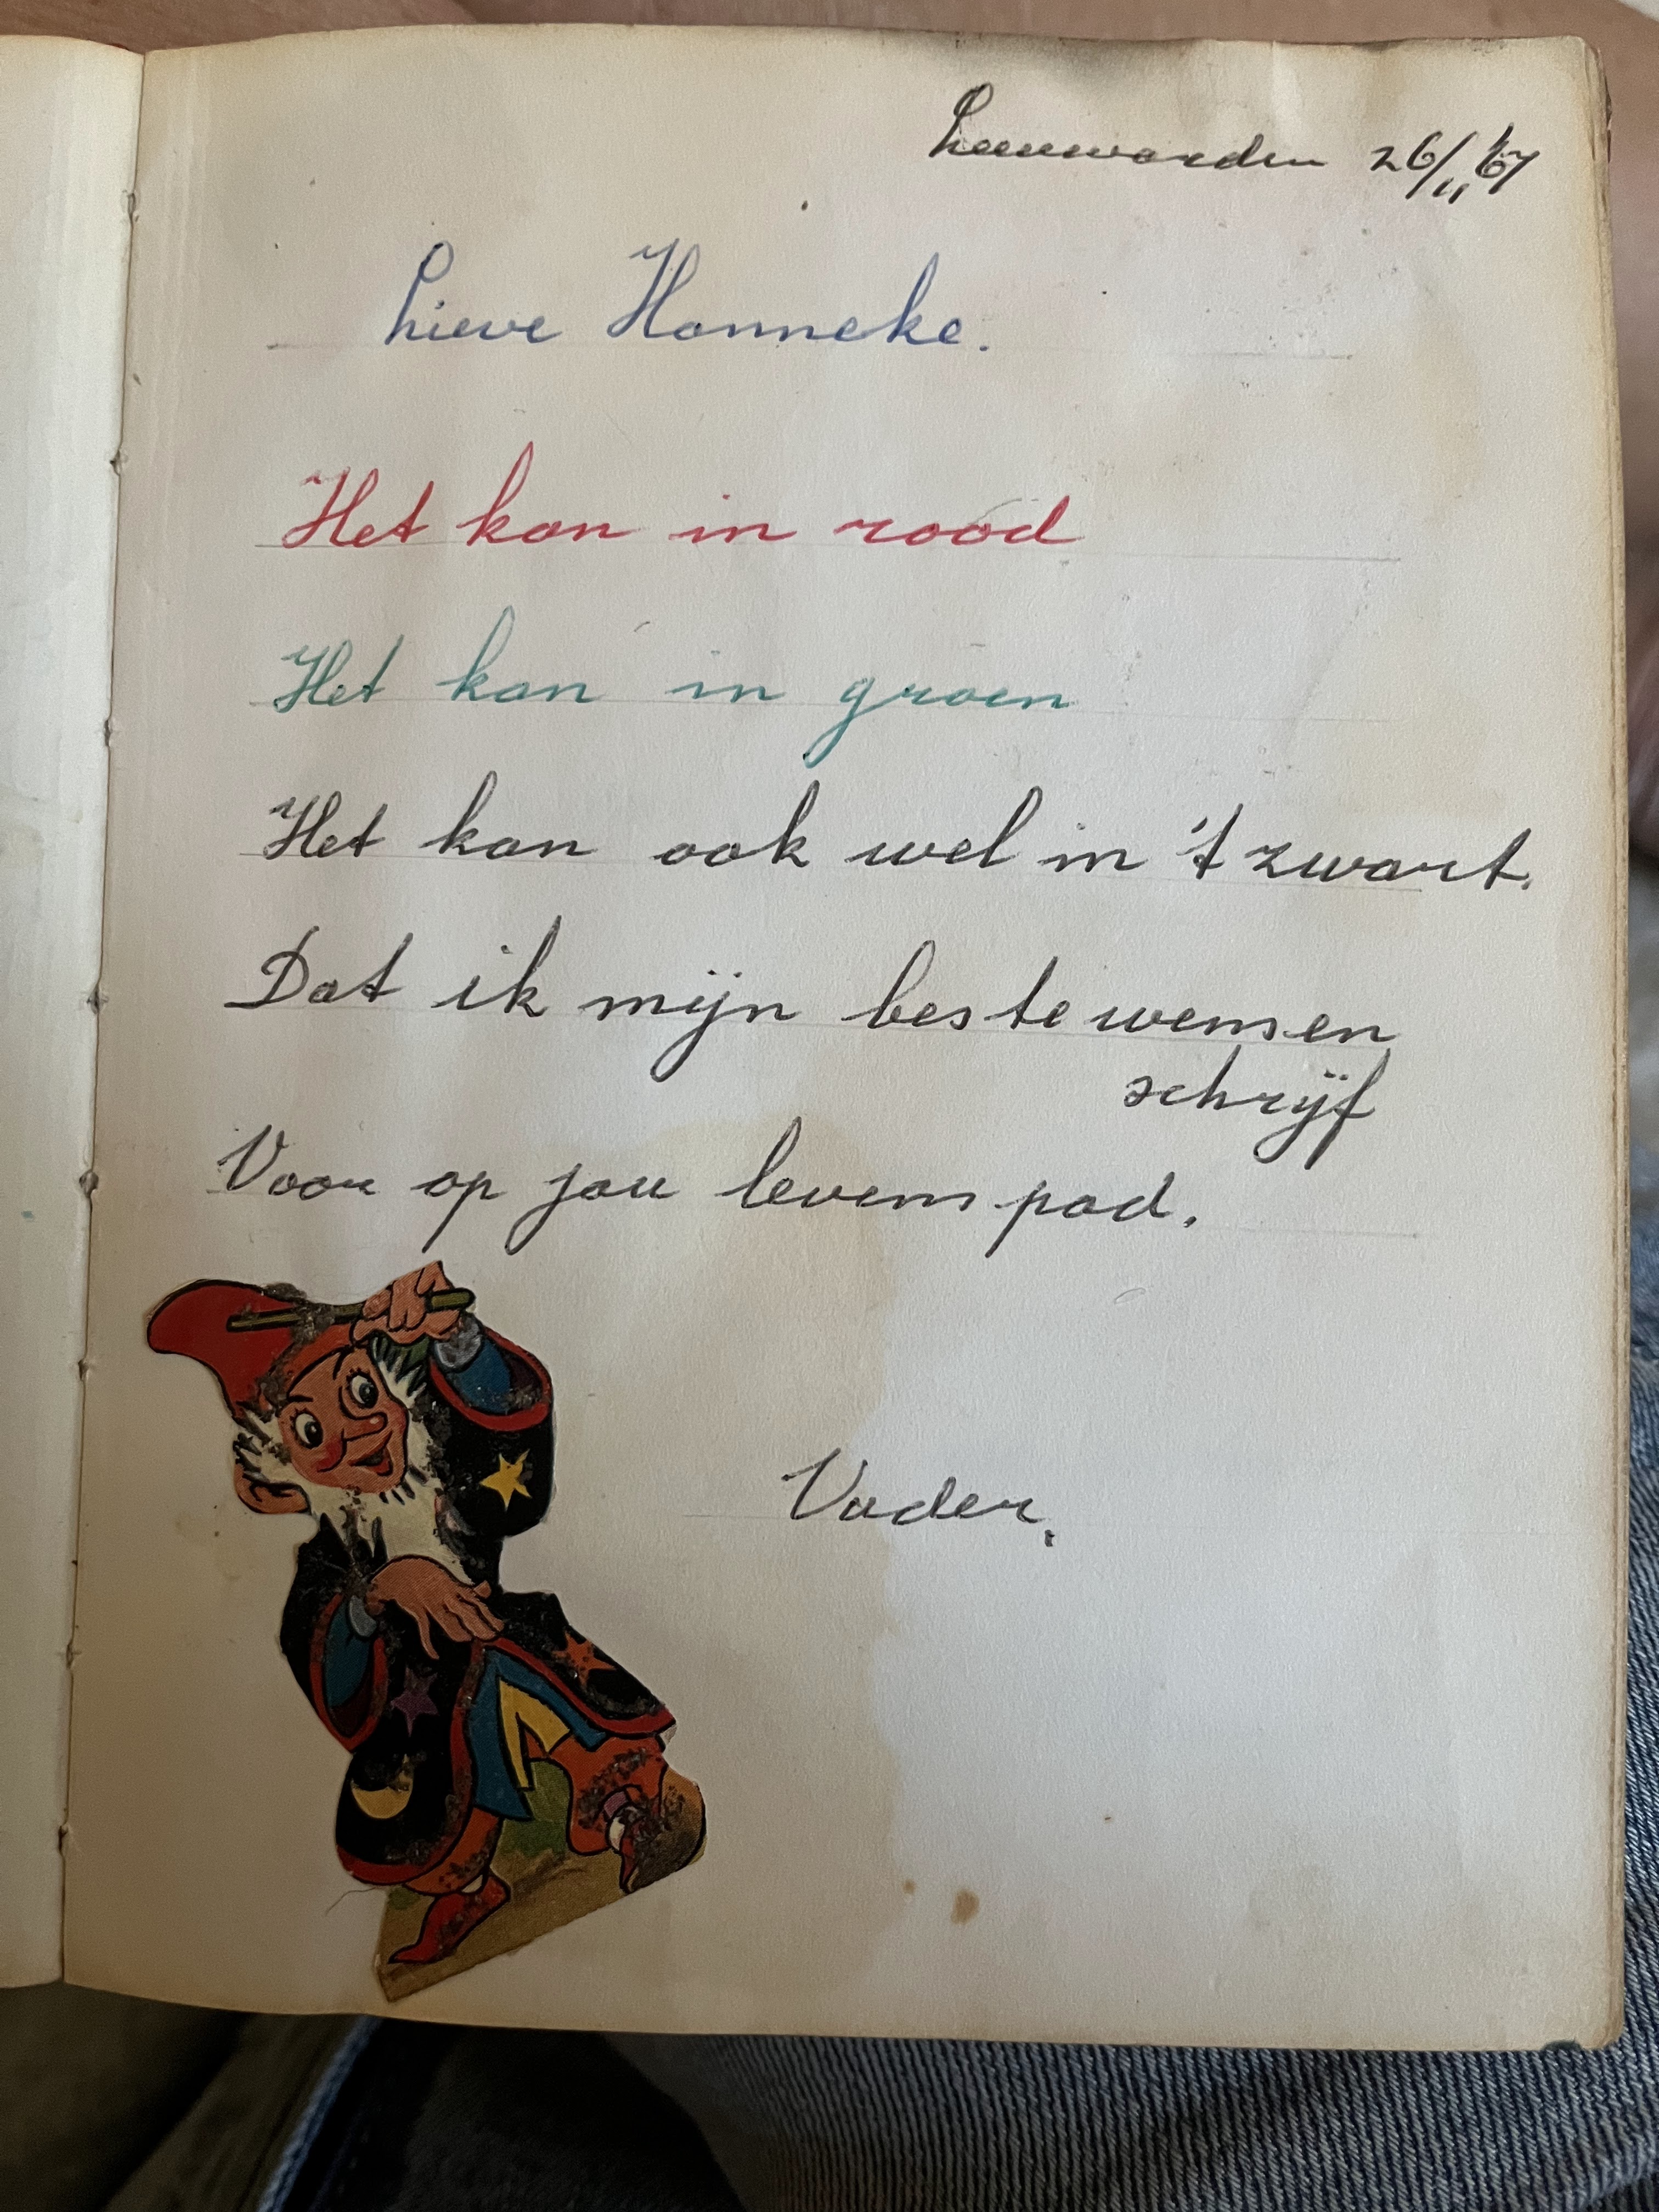 Leeuwarden 26/11 '67
Lieve Hanneke.
Het kan in rood
Het kan in groen
Het kan ook wel in 't zwart.
Dat ik mijn beste wensen
schrijf
Voor op jou levens pad.
Vader.